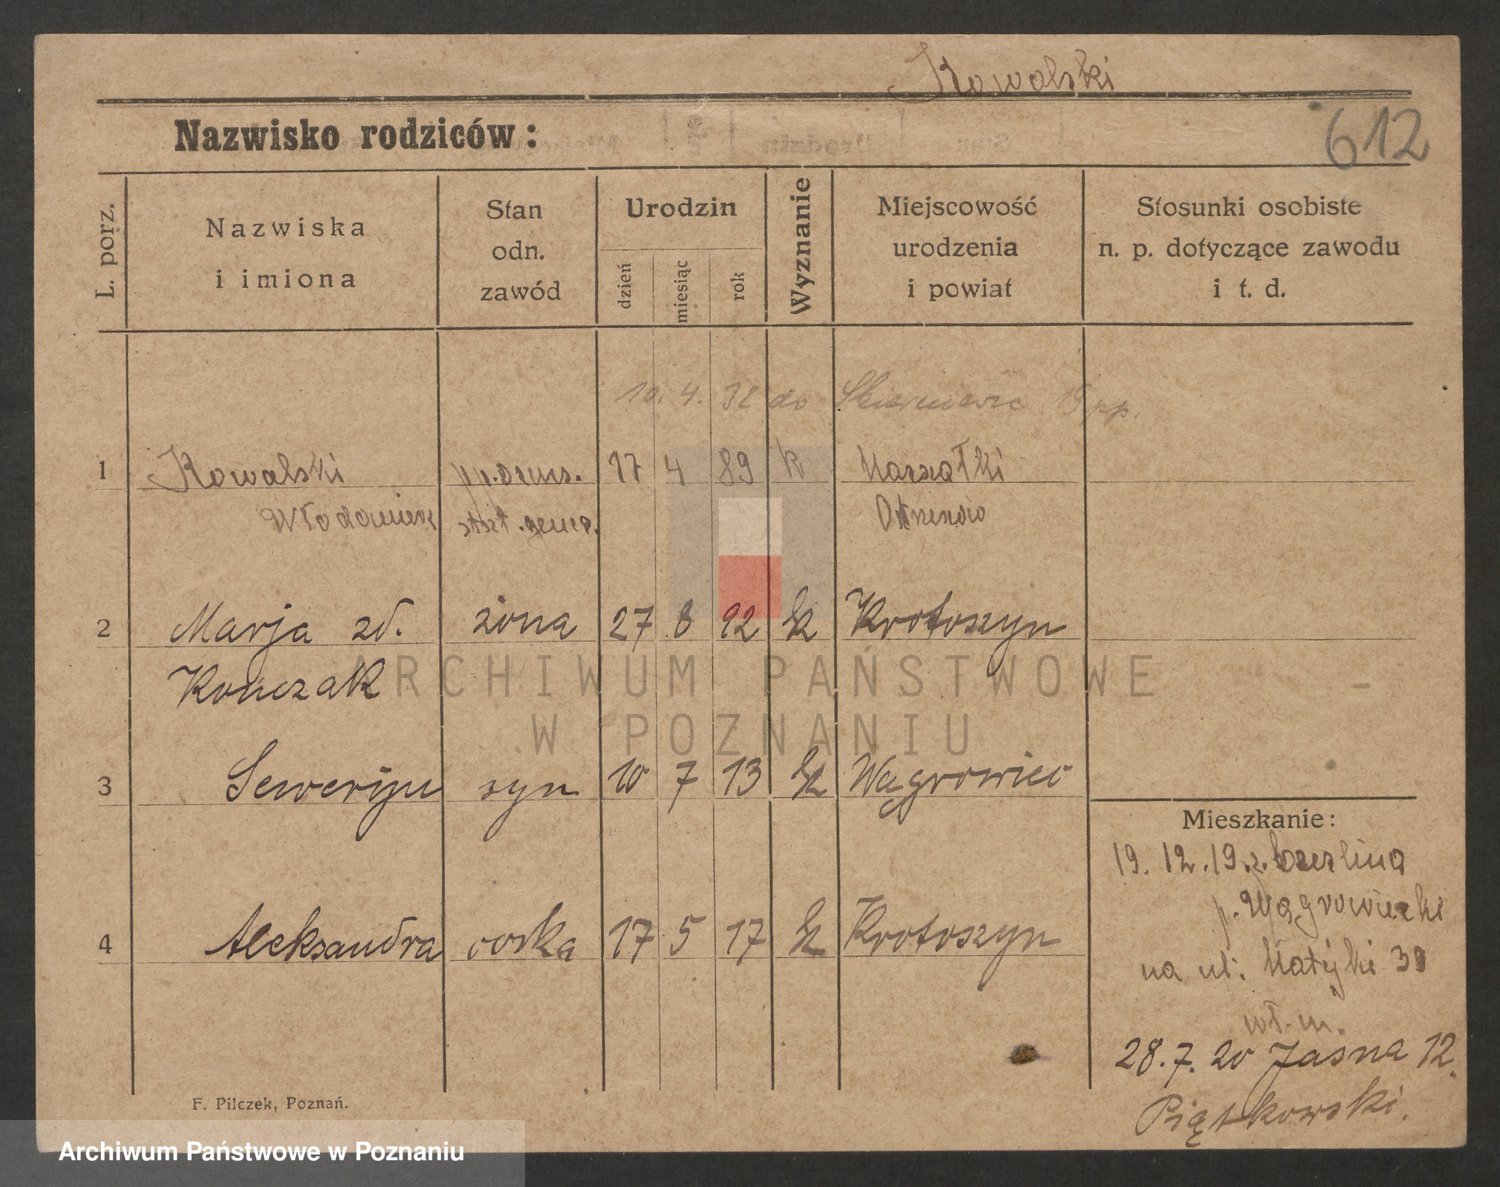 Kowalski
612
Nazwisko rodziców:
L. porz.
Nazwiska
i imiona
Stan
odn.
zawód
Urodzin
dzień
miesiąc
rok
Wyznanie
Miejscowość
urodzenia
i powiat
Stosunki osobiste
n. p. dotyczące zawodu
i t. d.
10. 4. 32 do Skierniewic pp.
1 Kowalski 17 4 89 k
Włodzimierz
2 Marja zd. żona 27 8 92 k Krotoszyn
Konczak
3 Seweryn syn 10 7 13 k Wągrowiec
4 Aleksandra corka 17 5 17 k Krotoszyn
Mieszkanie:
19. 12. 19. z
p. Wągrowiecki
na ul: Matejki 39
wł. m.
28. 7. 20 Jasna 12.
Piątkowski.
F. Pilczek, Poznań.
ARCHIWUM PAŃSTWOWE
W POZNANIU
Archiwum Państwowe w Poznaniu